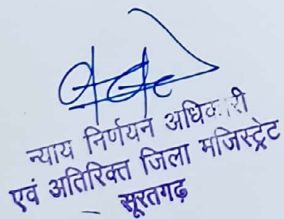 न्याय निर्णयन अधिकारी
एवं अतिरिक्त जिला मजिस्ट्रेट
सूरतगढ़